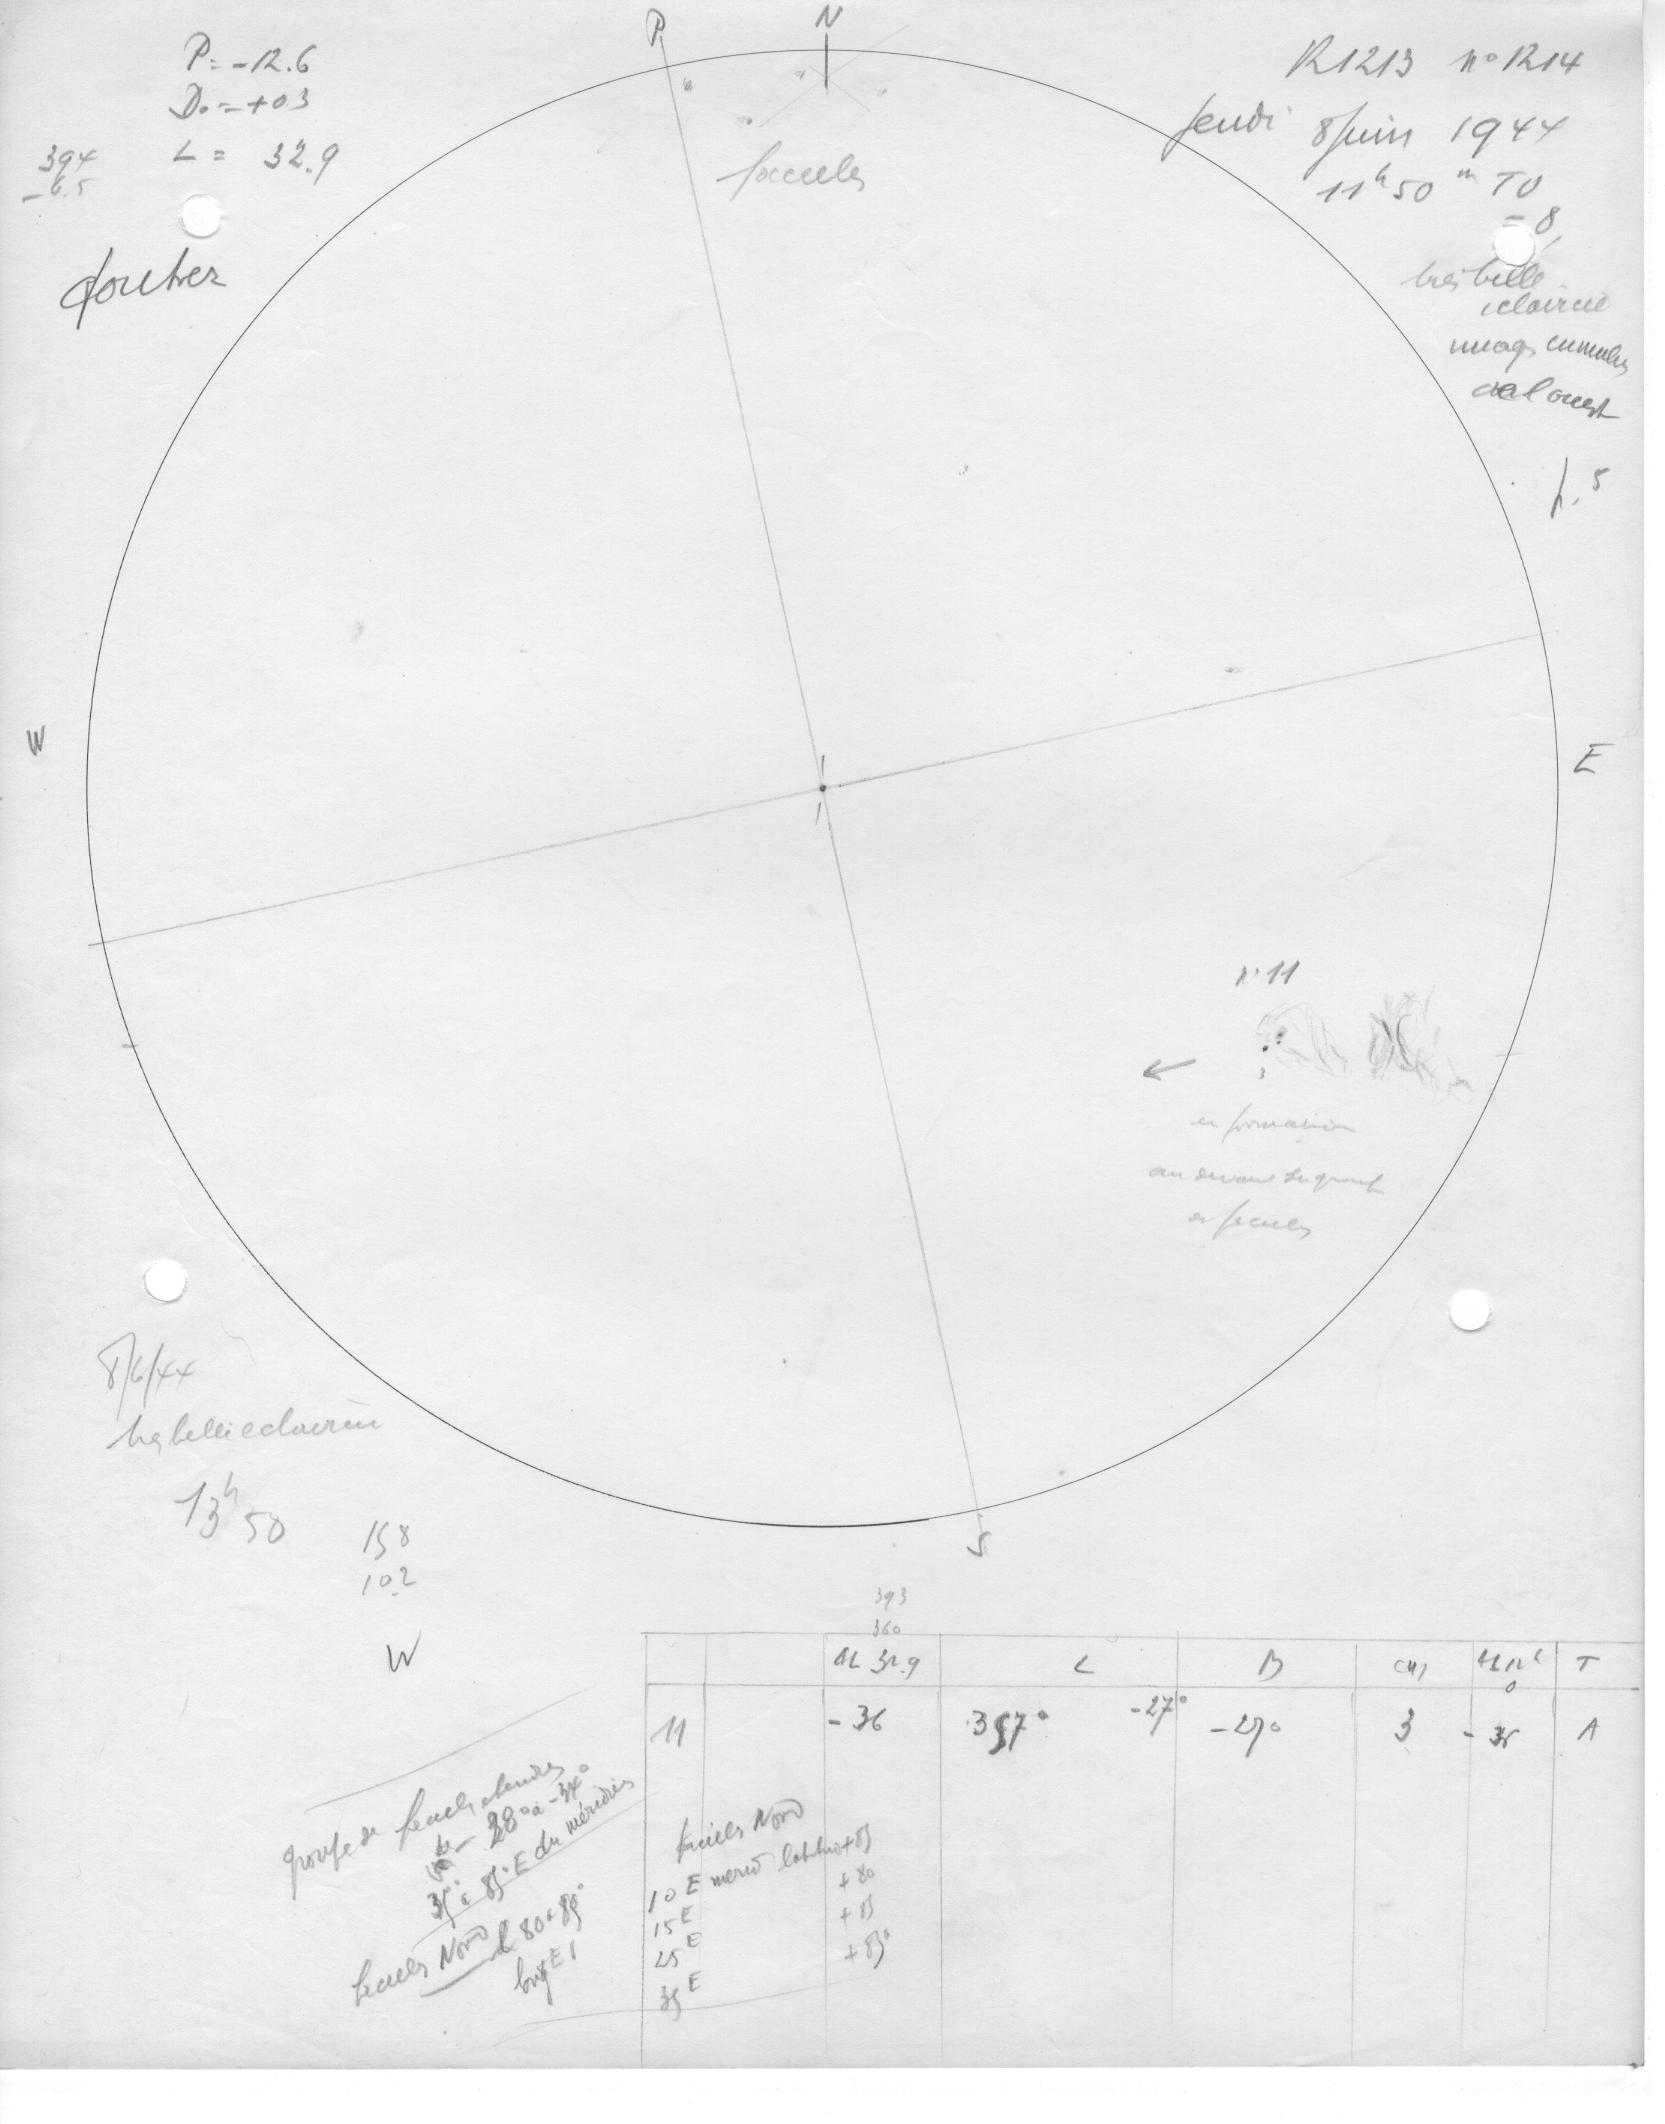 P = -12.6
D. = +03
L = 32.9
394
- 6.5
P
N
R1213 n° 1214
Jeudi 8 Juin 1944
11 h 50 m TU
- 8
très belle
éclaircie
nuages cumulus
de l'ouest
facules
W
E
n° 11
en formation
au devant du groupe
de facules
S
8/6/44
très belle éclaircie
13 h 50
158
102
W
393
360
L B T
11 - 36 357° -27° -27° 3 A
groupe de facules étendues
- 28° à - 34°
35° à 85° E du méridien
facules Nord 80 à 85°
facules Nord
10 E
+ 80
15 E
25 E
+ 85°
35 E